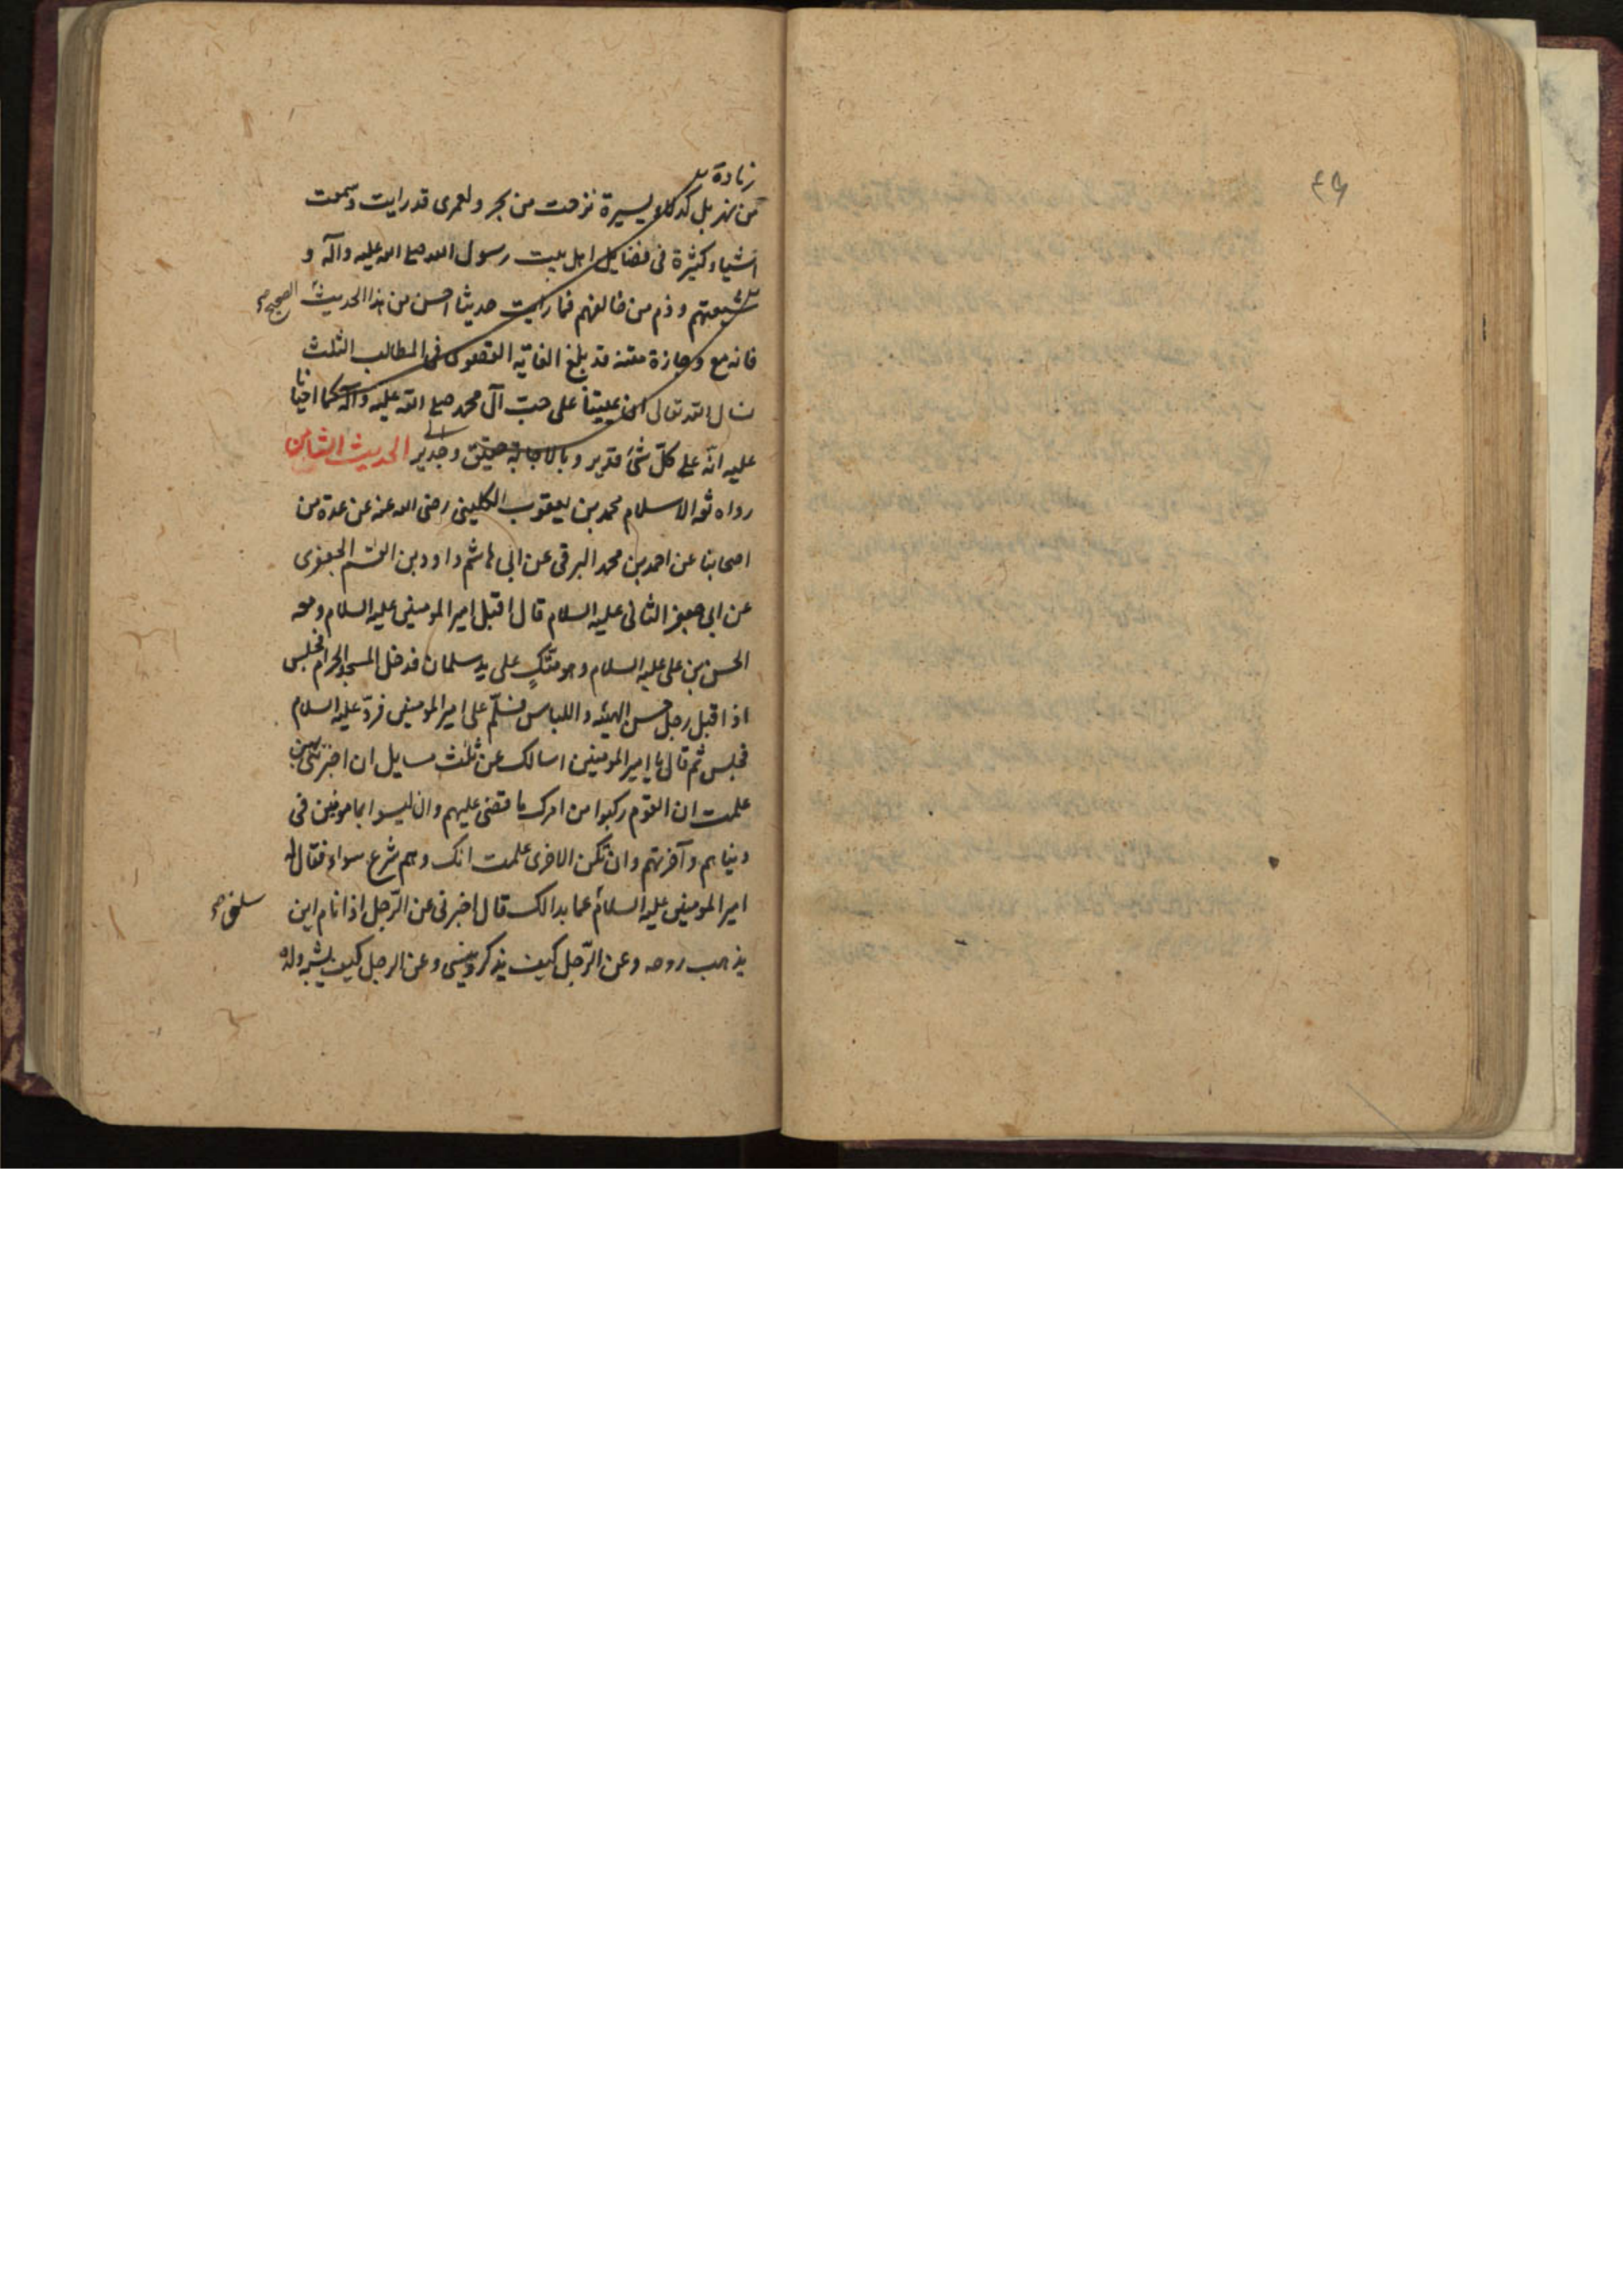 زيادة
من نهر بل كدكلاء يسيرة نزحت من بحر ولعمرى قد رايت وسمعت
اشياء كثيرة فى فضايل اهل بيت رسول الله صلى الله عليه وآله و
شيعتهم وذم من خالفهم فما رايت حديثا احسن من هذا الحديث الصحيح
فانه مع وجازة متنه قد بلغ الغاية القصوى فى المطالب الثلث
نسال الله تعالى ان يميتنا على حب آل محمد صلى الله عليه وآله كما احيانا
عليه انه على كل شئ قدير وبالاجابة حقيق وجدير الحديث الثامن
رواه ثقه الاسلام محمد بن يعقوب الكلينى رضى الله عنه عن عدة من
اصحابنا عن احمد بن محمد البرقى عن ابى هاشم داود بن القسم الجعفرى
عن ابى جعفر الثانى عليه السلام قال اقبل امير المومنين عليه السلام ومعه
الحسن بن على عليه السلام وهو متكٍ على يد سلمان فدخل المسجد الحرام فجلس
اذا اقبل رجل حسن الهيئه واللباس فسلّم على امير المومنين فردّ عليه السلام
فجلس ثم قال يا امير المومنين اسالك عن ثلث مسايل ان اخبرتنى بهن
علمت ان القوم ركبوا من امرك ما قضى عليهم وان ليسوا بمامونين فى
دنياهم وآخرتهم وان تكن الاخرى علمت انك وهم شرع سواء فقال له
امير المومنين عليه السلام عما بدالك قال اخبرنى عن الرّجل اذا نام اين
يذهب روحه وعن الرّجل كيف يذكر وينسى وعن الرجل كيف يشبه ولده